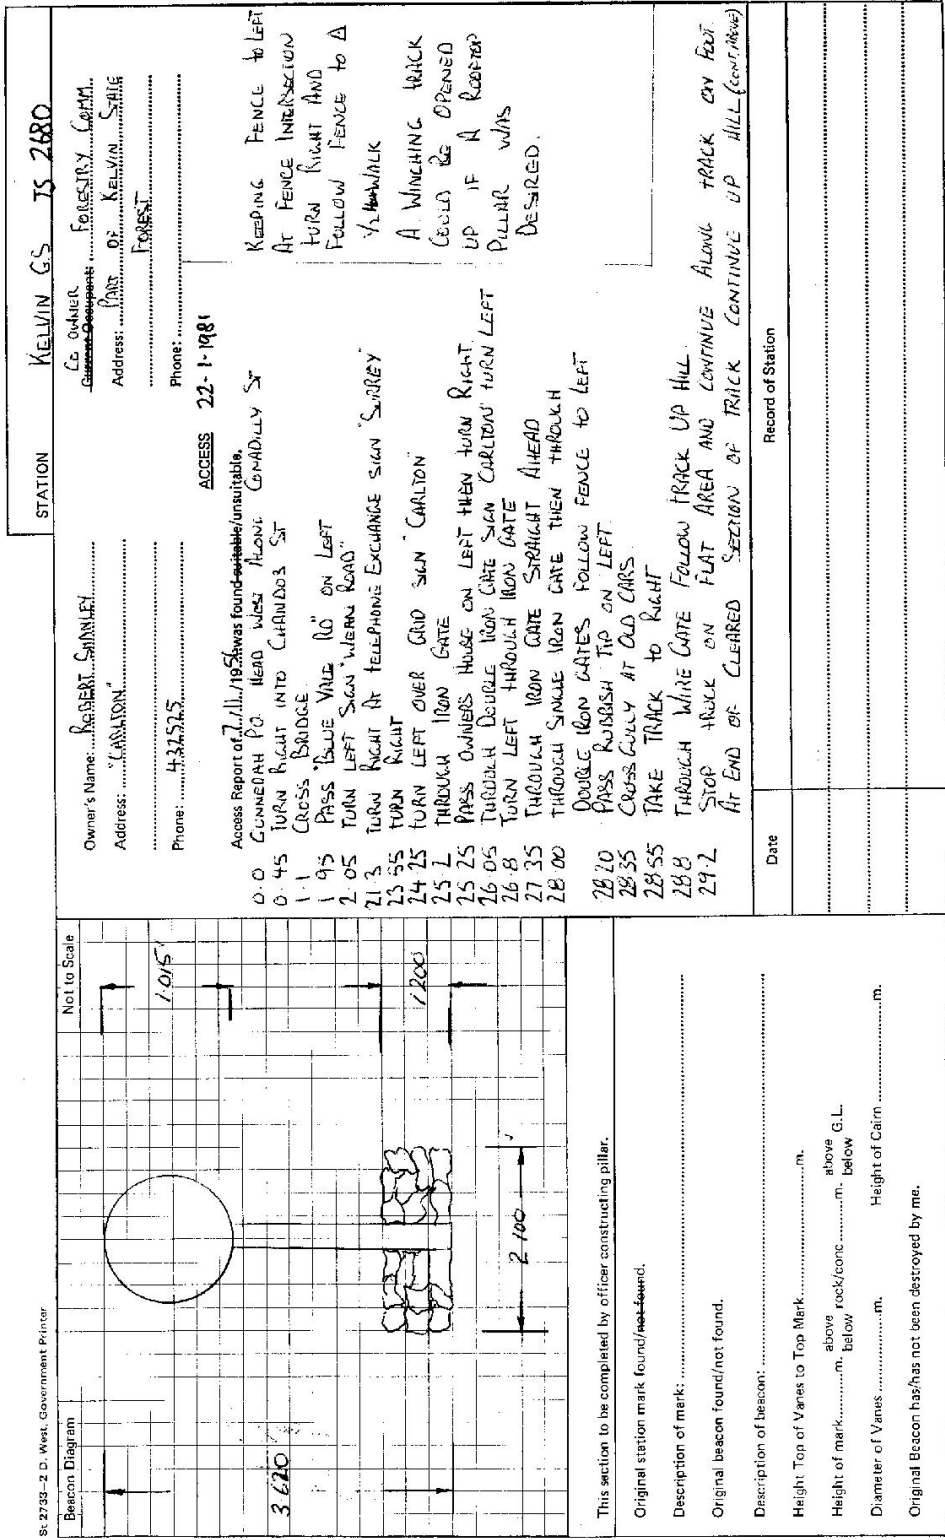 St 2733–2 D. West, Government Printer
Beacon Diagram
Not to Scale
3.620
1.015
1.200
2.100
This section to be completed by officer constructing pillar.
Original station mark found/not found.
Description of mark:
Original beacon found/not found.
Description of beacon:
Height Top of Vanes to Top Mark m.
Height of mark m. above below rock/conc m. above below G.L.
Diameter of Vanes m. Height of Cairn m.
Original Beacon has/has not been destroyed by me.
STATION KELVIN GS TS 2680
Owner's Name: ROBERT SHANLEY
Address: "CARLTON"
Phone: 432525
CO OWNER
Current Occupant: FORESTRY COMM.
Address: PART OF KELVIN STATE
FOREST
Phone:
ACCESS 22-1-1981
Access Report of 7/11/1956 was found suitable/unsuitable.
0.0 GUNNEDAH P.O. HEAD WEST ALONG CONADILLY ST
0.45 TURN RIGHT INTO CHANDOS ST
1.1 CROSS BRIDGE
1.95 PASS "BLUE VALE RD" ON LEFT
2.05 TURN LEFT SIGN "WEAN ROAD"
21.3 TURN RIGHT AT TELEPHONE EXCHANGE SIGN "SURREY"
23.55 TURN RIGHT
24.25 TURN LEFT OVER GRID SIGN "CARLTON"
25.2 THROUGH IRON GATE
25.25 PASS OWNERS HOUSE ON LEFT THEN TURN RIGHT.
26.05 THROUGH DOUBLE IRON GATE SIGN CARLTON" TURN LEFT
26.8 TURN LEFT THROUGH IRON GATE
27.35 THROUGH IRON GATE STRAIGHT AHEAD
28.00 THROUGH SINGLE IRON GATE THEN THROUGH
DOUBLE IRON GATES FOLLOW FENCE TO LEFT
28.20 PASS RUBBISH TIP ON LEFT.
28.35 CROSS GULLY AT OLD CARS.
28.55 TAKE TRACK TO RIGHT
28.8 THROUGH WIRE GATE FOLLOW TRACK UP HILL.
29.2 STOP TRUCK ON FLAT AREA AND CONTINUE ALONG TRACK ON FOOT.
AT END OF CLEARED SECTION OF TRACK CONTINUE UP HILL (CONT. ABOVE)
KEEPING FENCE TO LEFT
AT FENCE INTERSECTION
TURN RIGHT AND
FOLLOW FENCE TO △
1/2 WALK
A WINCHING TRACK
COULD BE OPENED
UP IF A ROOFTOP
PILLAR WAS
DESIRED.
Date
Record of Station